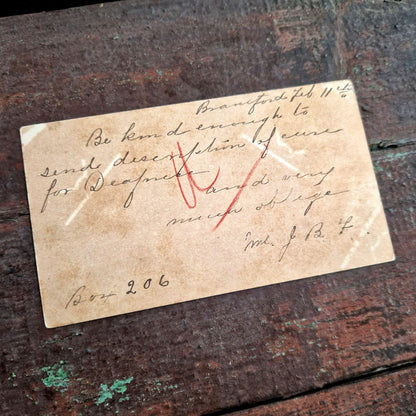 Branford Feb 11th
Be kind enough to
send description of cure
for Deafness and very
much oblige
J B F.
Box 206